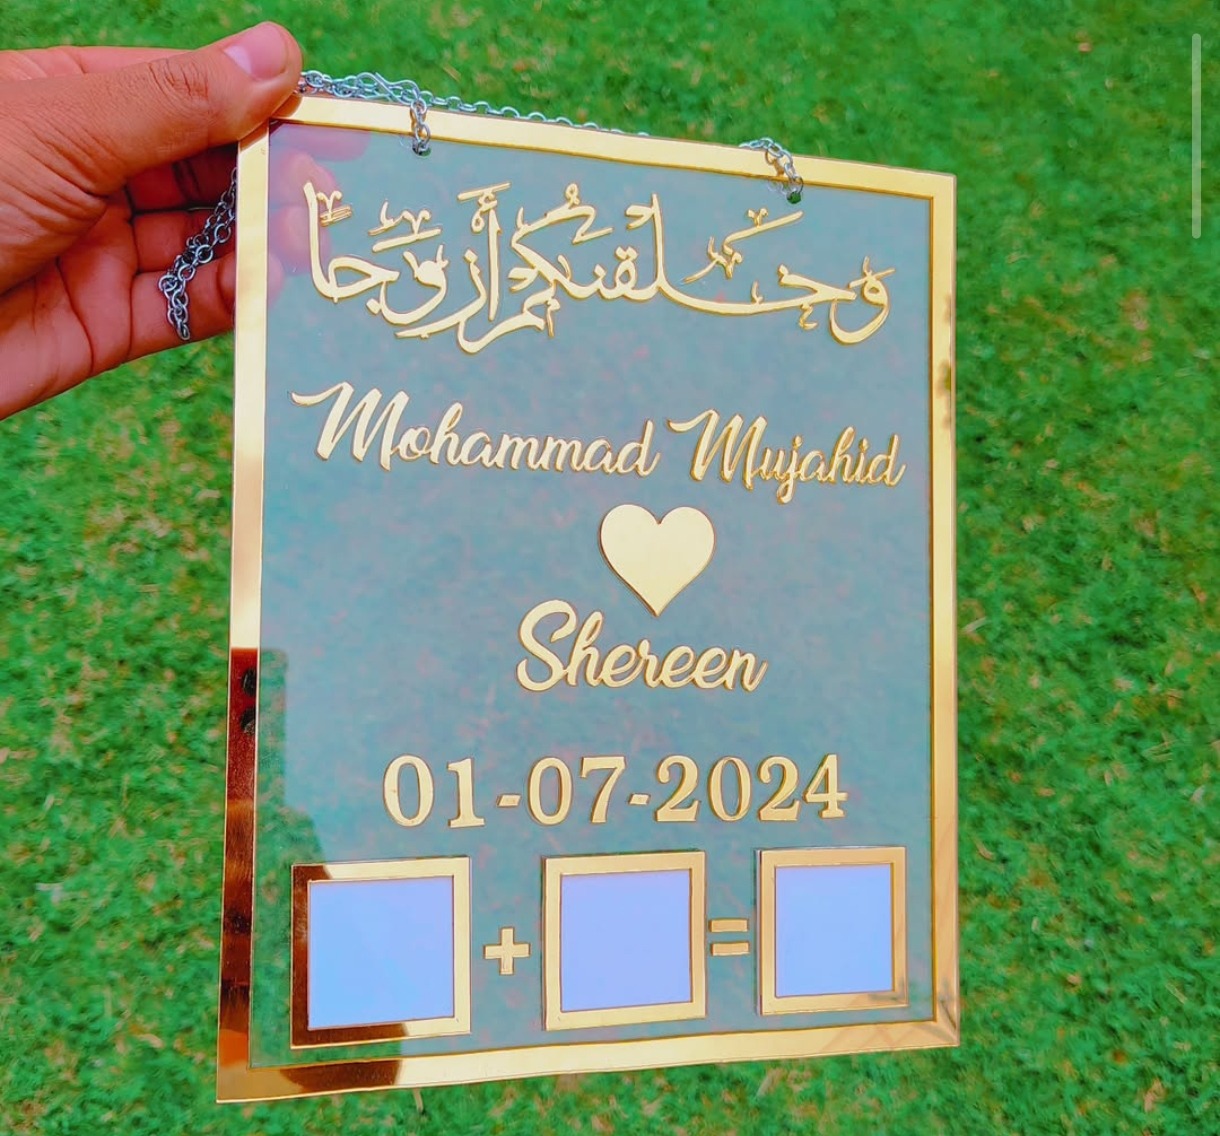 وخلقنكم أزوجا
Mohammad Mujahid
Shereen
01-07-2024
+ =